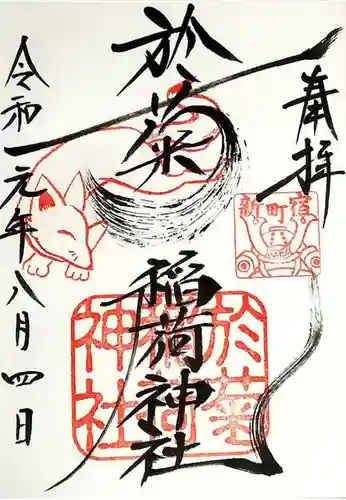 奉拝
新町宿
於菊
稲荷神社
於菊稲荷神社
令和元年八月四日